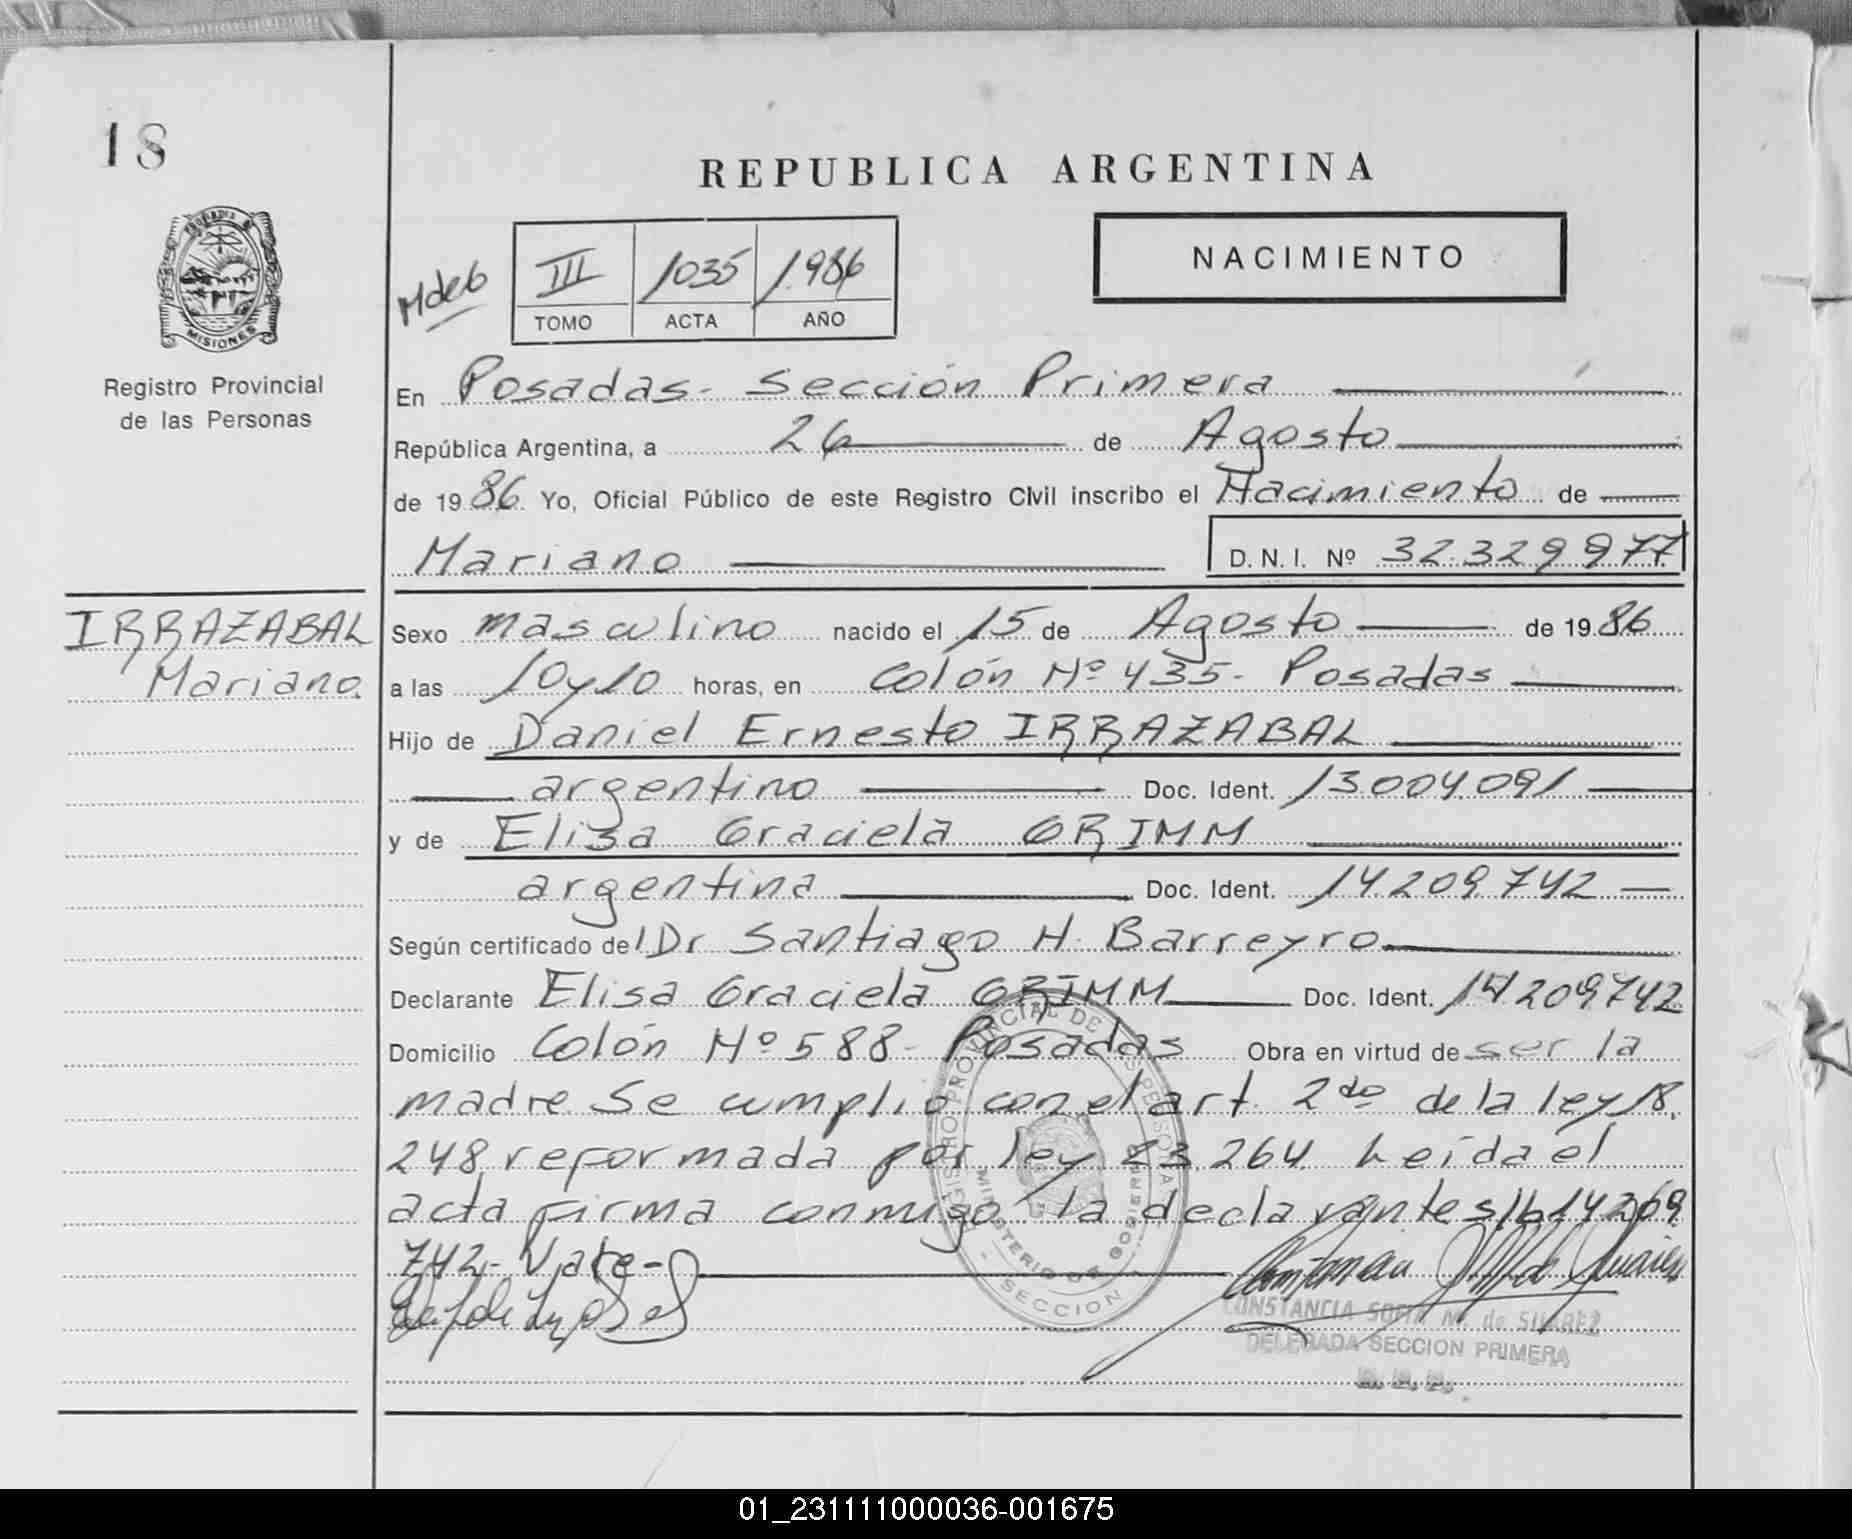 18
REPUBLICA ARGENTINA
NACIMIENTO
III 1035 1.986
TOMO ACTA AÑO
MISIONES
Registro Provincial
de las Personas
En Posadas- Sección Primera
República Argentina, a 26 de Agosto
de 1986. Yo, Oficial Público de este Registro Civil inscribo el Nacimiento de
Mariano D. N. I. Nº 32.329.977
IRRAZABAL
Mariano.
Sexo masculino nacido el 15 de Agosto de 1986
a las 10 y 10 horas, en Colón Nº 435- Posadas
Hijo de Daniel Ernesto IRRAZABAL
argentino Doc. Ident. 13.004.091
y de Elisa Graciela GRIMM
argentina Doc. Ident. 14.209.742
Según certificado del Dr Santiago H. Barreyro
Declarante Elisa Graciela GRIMM Doc. Ident. 14.209.742
Domicilio Colón Nº 588- Posadas Obra en virtud de ser la
madre. Se cumplió con el art. 2do de la ley 18.
248 reformada por ley 23.264. Leída el
acta firma conmigo la declarante s/b 14 209
742- Vale-
REGISTRO PROVINCIAL DE LAS PERSONAS
MINISTERIO DE GOBIERNO
SECCION
CONSTANCIA SOFIA M. de SUAREZ
DELEGADA SECCION PRIMERA
01_231111000036-001675